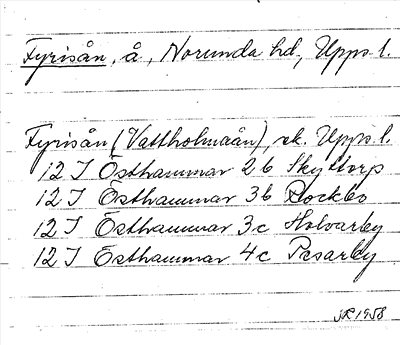 Fyrisån, å, Norunda hd, Upps. l.
Fyrisån (Vattholmaån), ek. Upps. l.
12 I Östhammar 2 b Skyttorp
12 I Östhammar 3 b Rockbo
12 I Östhammar 3 c Holvarby
12 I Östhammar 4 c Pesarby
1958